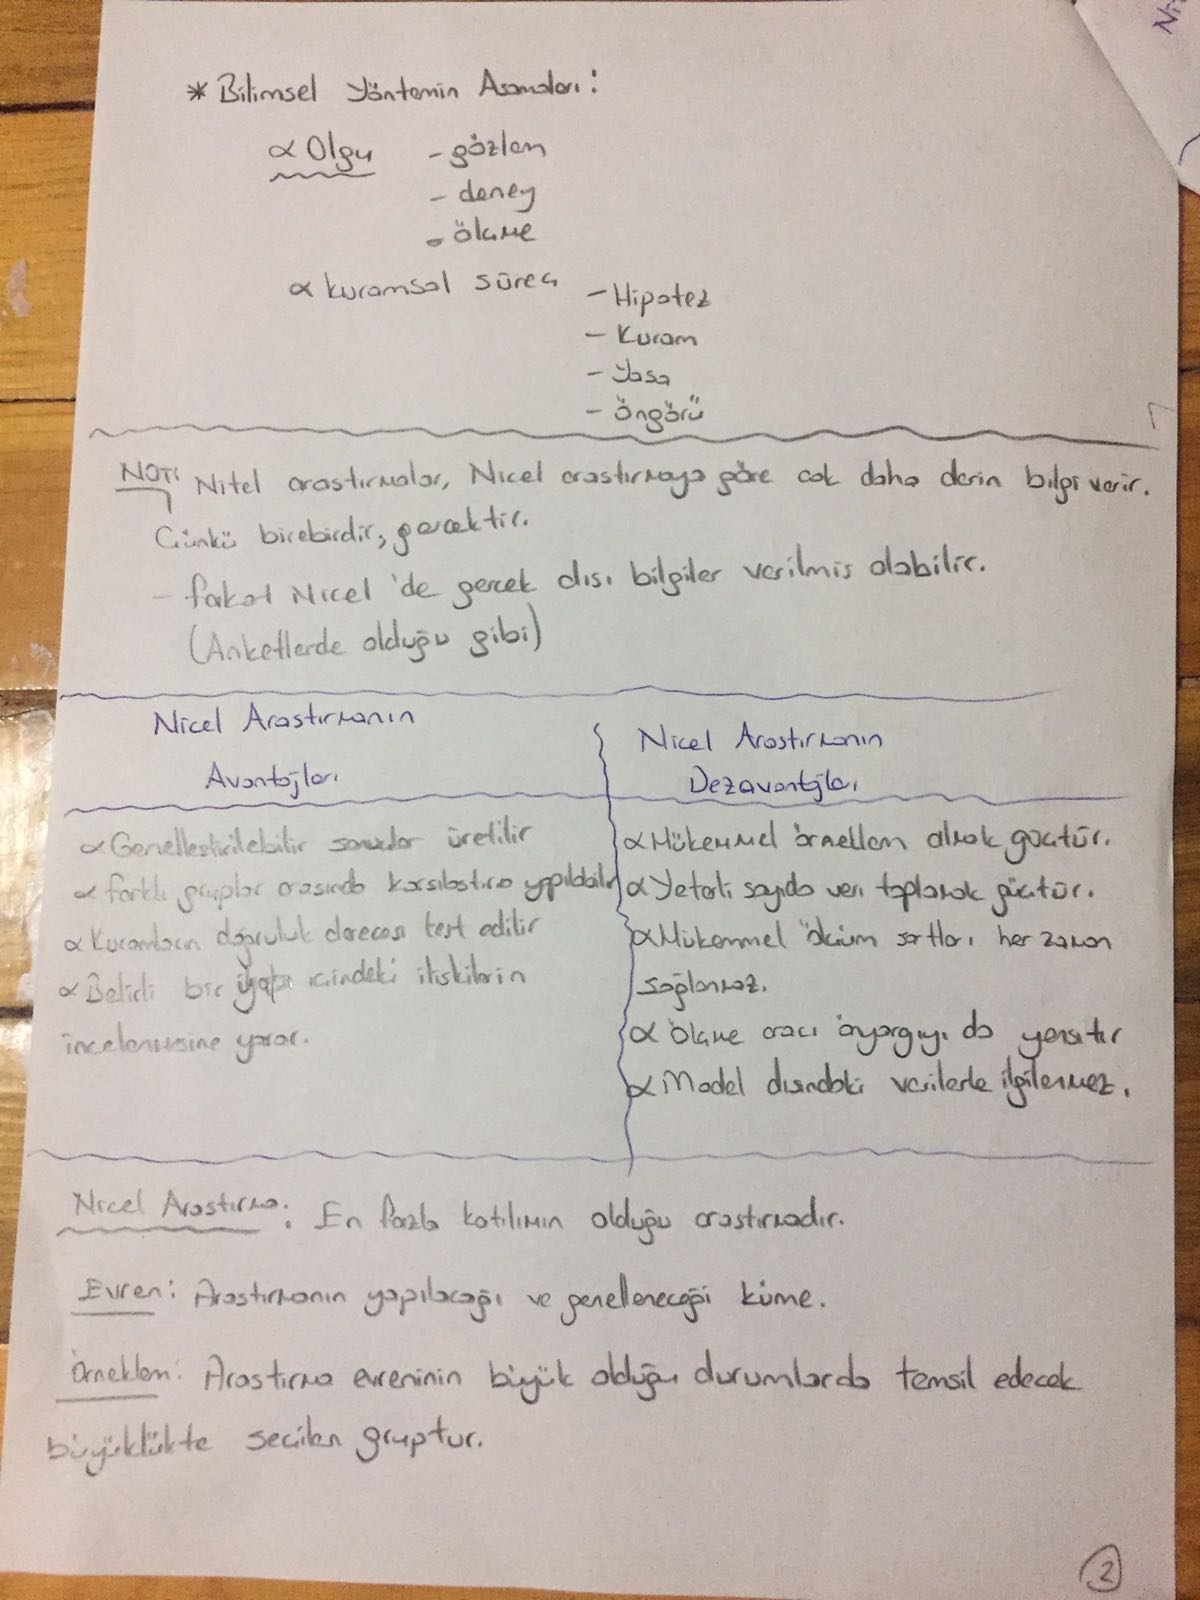 * Bilimsel Yöntemin Aşamaları:
α Olgu - gözlem
- deney
- ölçme
α kuramsal süreç - Hipotez
- Kuram
- Yasa
- Öngörü
NOT: Nitel araştırmalar, Nicel araştırmaya göre çok daha derin bilgi verir.
Çünkü birebirdir, gerçektir.
- fakat Nicel 'de gerçek dışı bilgiler verilmiş olabilir.
(Anketlerde olduğu gibi)
Nicel Araştırmanın
Avantajları
α Genelleştirilebilir sonuçlar üretilir
α farklı gruplar arasında karşılaştırma yapılabilir
α Kuramların doğruluk derecesi test edilir
α Belirli bir yapı içindeki ilişkilerin
incelenmesine yarar.
Nicel Araştırmanın
Dezavantajları
α Mükemmel örneklem almak güçtür.
α Yeterli sayıda veri toplamak güçtür.
α Mükemmel ölçüm şartları her zaman
sağlanmaz.
α Ölçme aracı önyargıyı da yansıtır
α Model dışındaki verilerle ilgilenmez.
Nicel Araştırma: En fazla katılımın olduğu araştırmadır.
Evren: Araştırmanın yapılacağı ve genelleneceği küme.
Örneklem: Araştırma evreninin büyük olduğu durumlarda temsil edecek
büyüklükte seçilen gruptur.
2